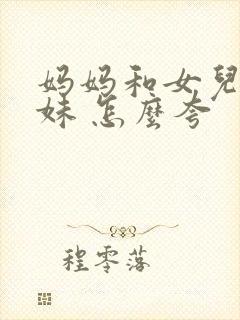 妈妈和女兒
妹 怎麼夸
程零落